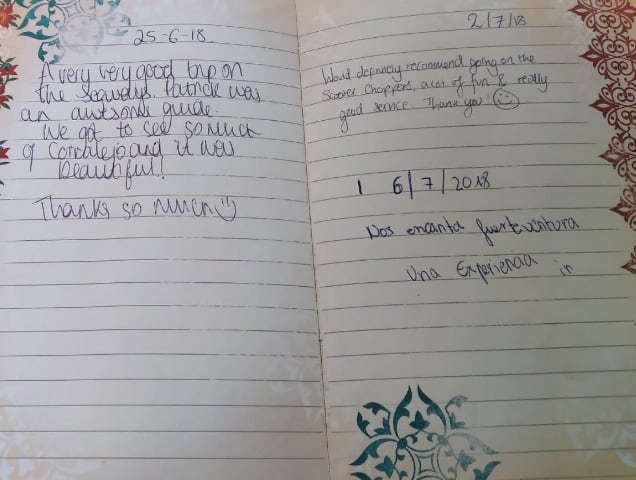 25-6-18
A very very good trip on
the segways. Patrick was
an awesome guide.
We got to see so much
of Corralejo and it was
beautiful!
Thanks so much :)
2/7/18
Would definitely recommend going on the
Scooter Choppers, a lot of fun & really
good service. Thank you! ☺
1 6/7/2018
Nos encanta fuerteventura
Una Experiencia in